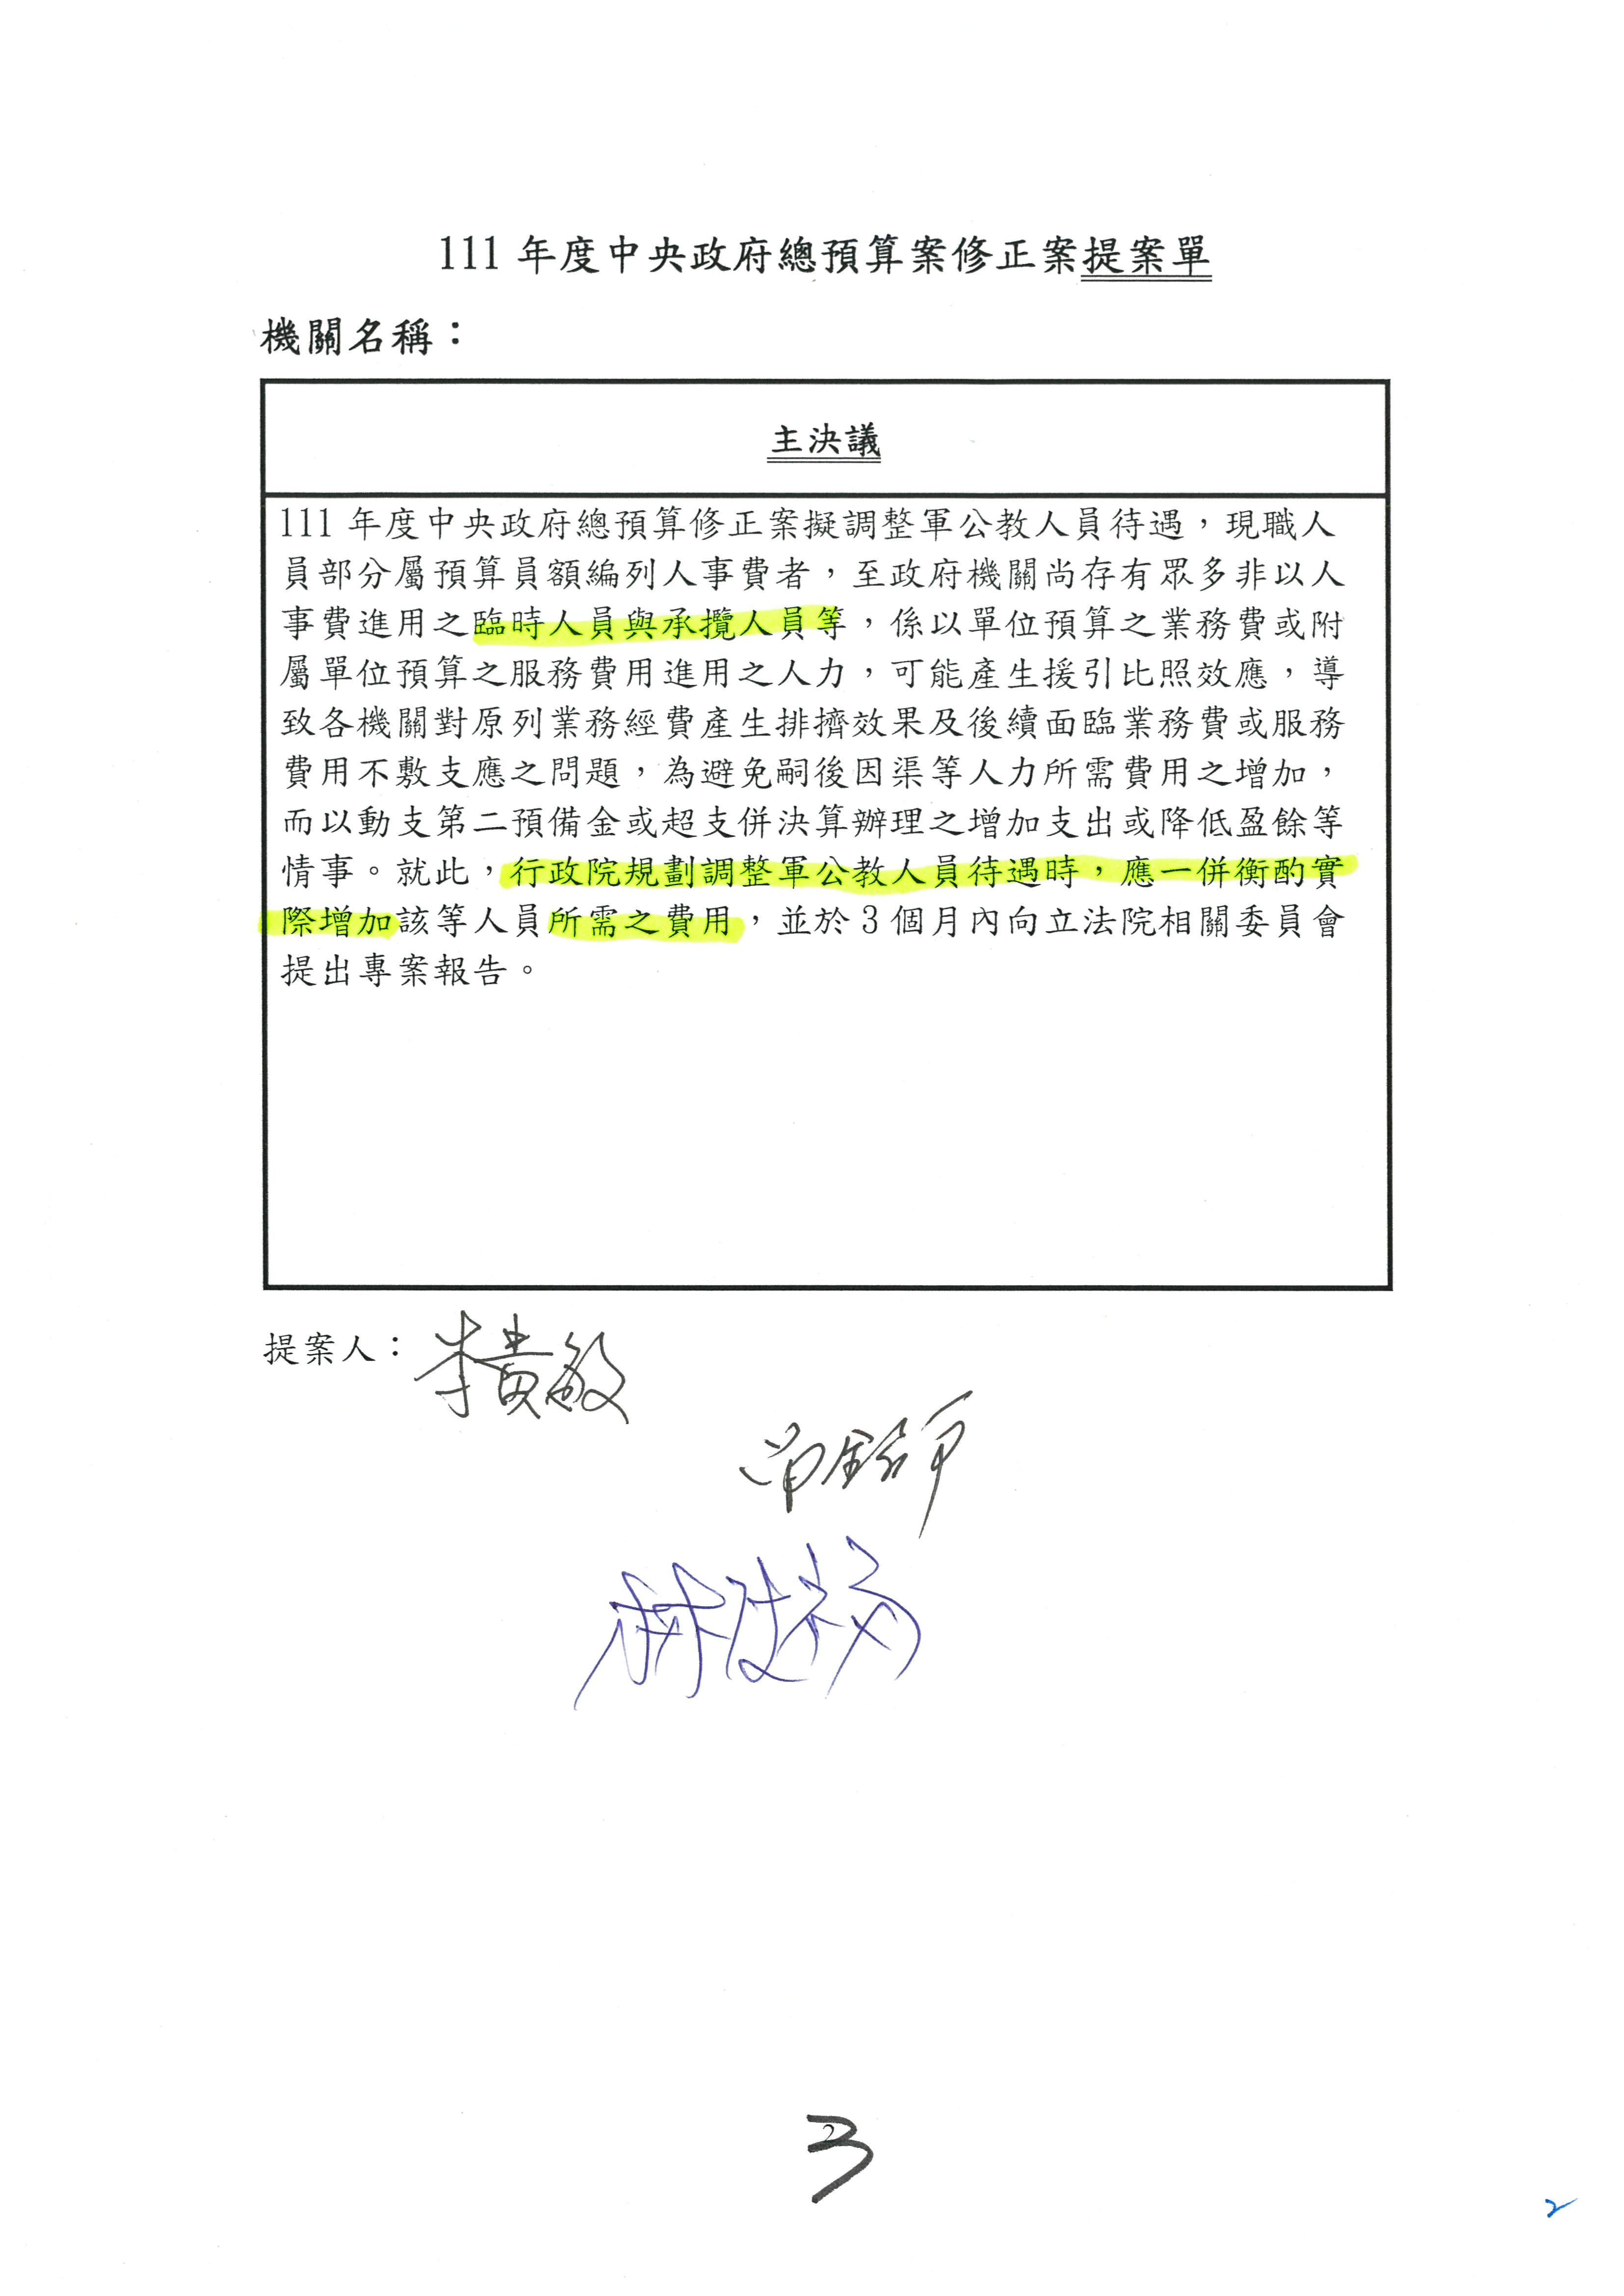 111 年度中央政府總預算案修正案提案單
機關名稱：
主決議
111 年度中央政府總預算修正案擬調整軍公教人員待遇，現職人
員部分屬預算員額編列人事費者，至政府機關尚存有眾多非以人
事費進用之臨時人員與承攬人員等，係以單位預算之業務費或附
屬單位預算之服務費用進用之人力，可能產生援引比照效應，導
致各機關對原列業務經費產生排擠效果及後續面臨業務費或服務
費用不敷支應之問題，為避免嗣後因渠等人力所需費用之增加，
而以動支第二預備金或超支併決算辦理之增加支出或降低盈餘等
情事。就此，行政院規劃調整軍公教人員待遇時，應一併衡酌實
際增加該等人員所需之費用，並於 3 個月內向立法院相關委員會
提出專案報告。
提案人：李貴敏
3
2
2